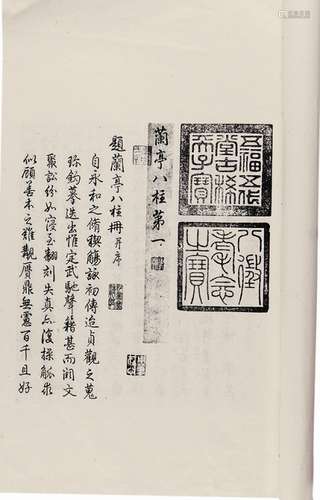 五福五代
堂古稀
天子寶
八徵
耄念
之寶
蘭亭八柱第一
題蘭亭八柱冊 并序
自永和之脩禊觴詠初傳迨貞觀之蒐
珍鈎摹迭出惟定武馳聲籍甚而潤文
聚訟紛如寖至翻刻失真亦復操觚求
似顧善本之難覯贋鼎無慮百千且好